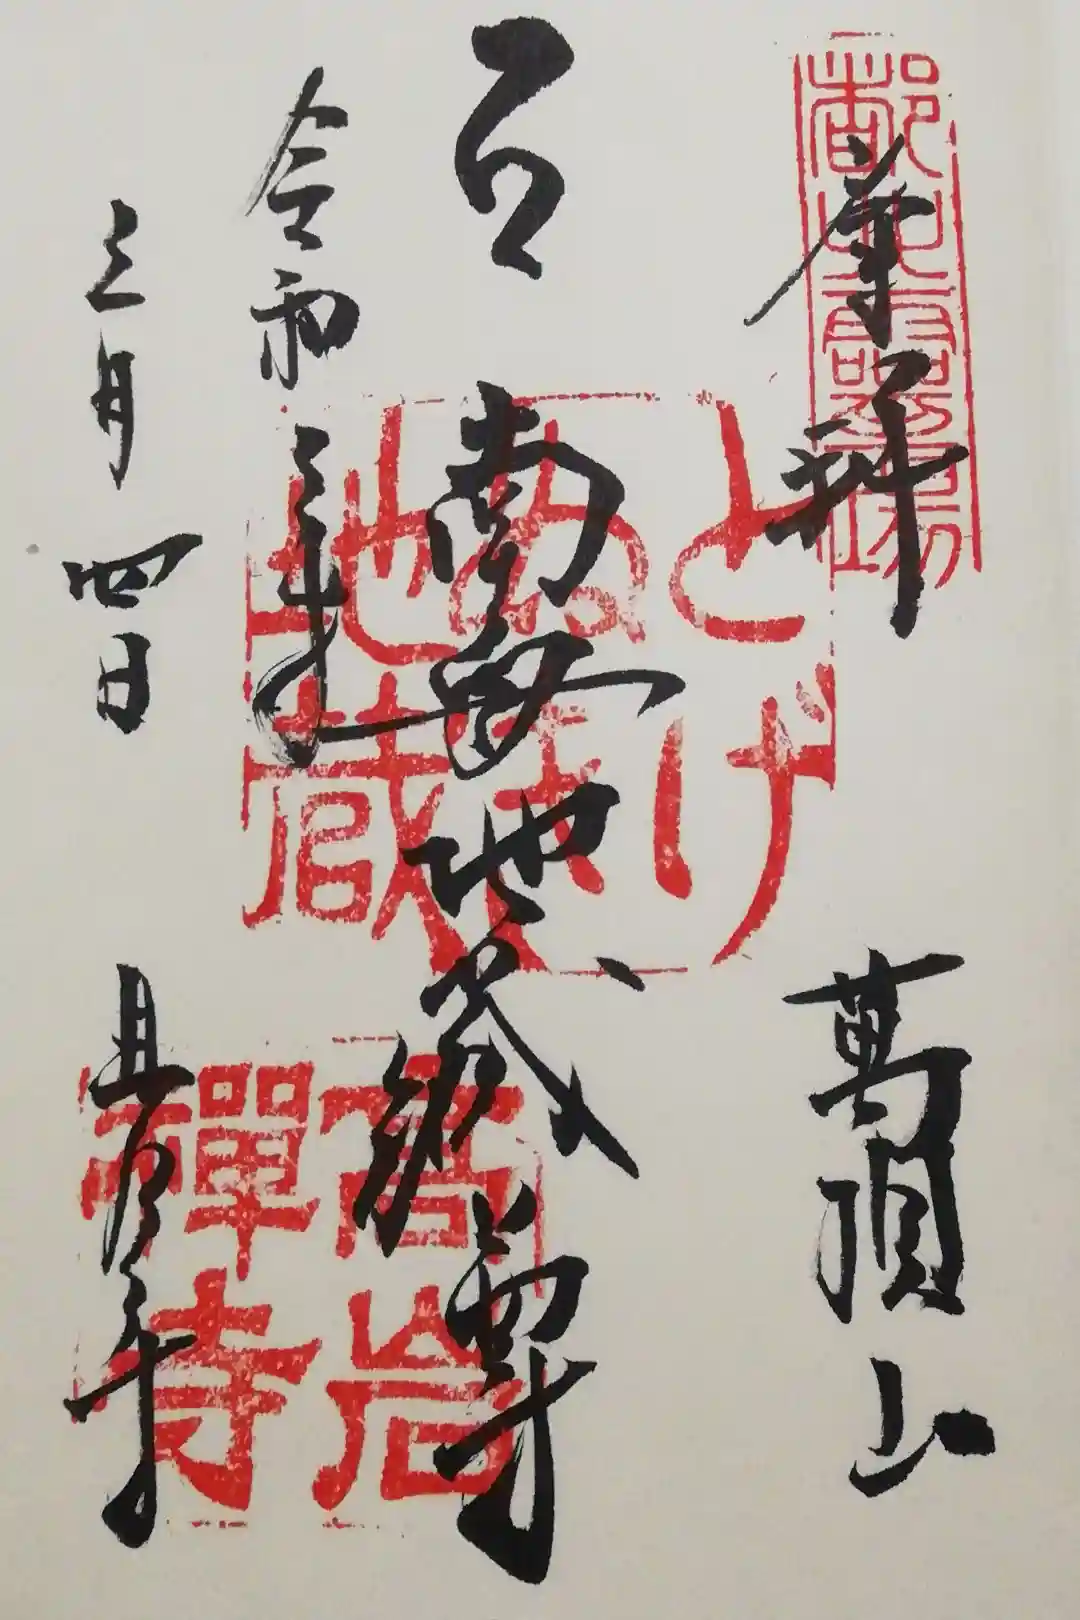 奉拝
萬頂山
南無地蔵尊
令和三年
三月四日
高岩寺
とげ
ぬき
地蔵
高岩
禪寺